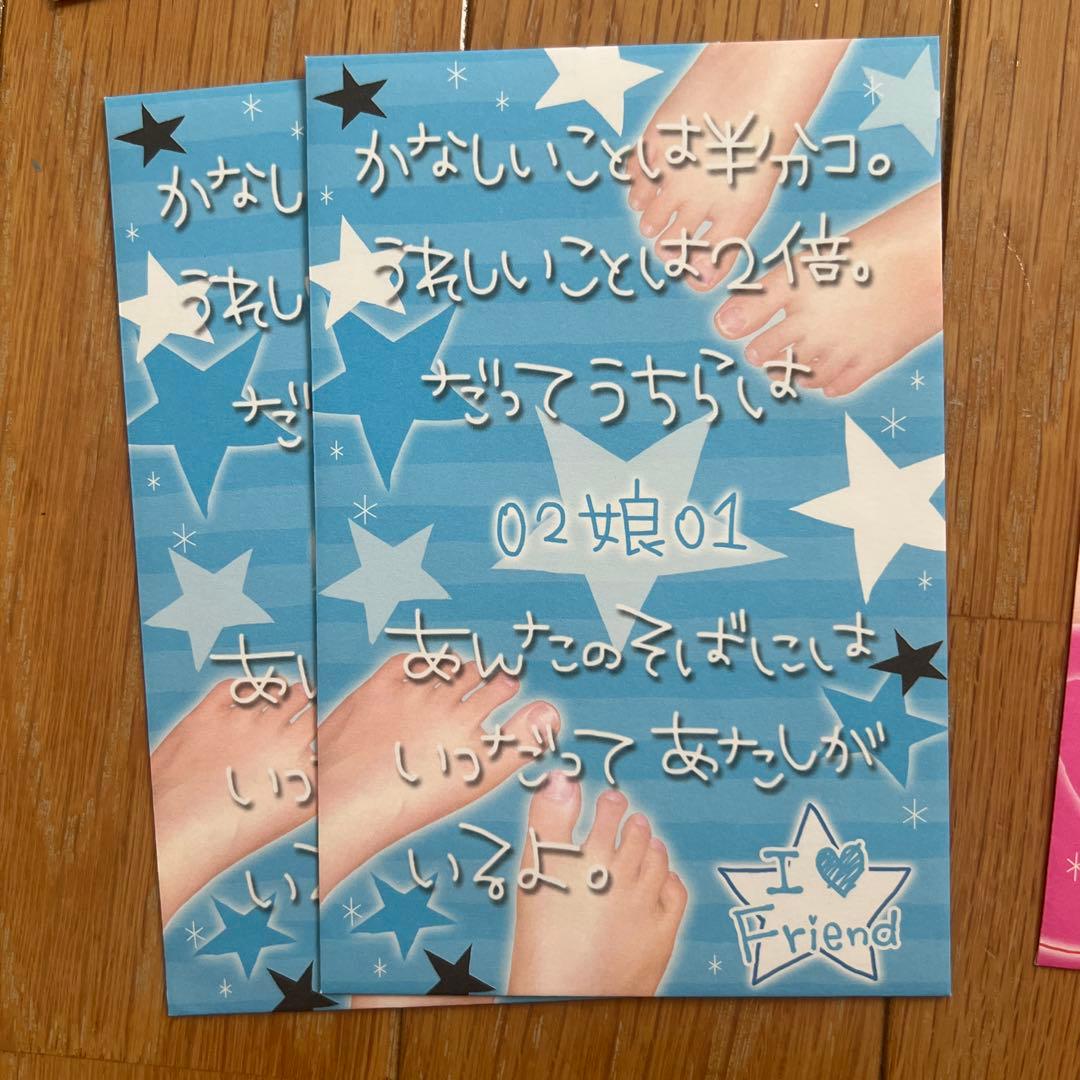 かなしいことは半分コ。
うれしいことは2倍。
だってうちらは
02娘01
あんたのそばには
いつだってあたしが
いるよ。
I ♥
Friend
かなし
うれし
だ
あ
いつ
いる